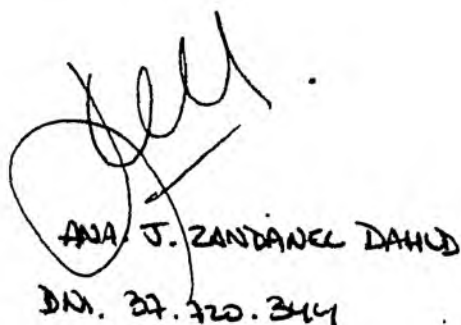 ANA. J. ZANDANEL DAHUD
DNI. 37.720.344